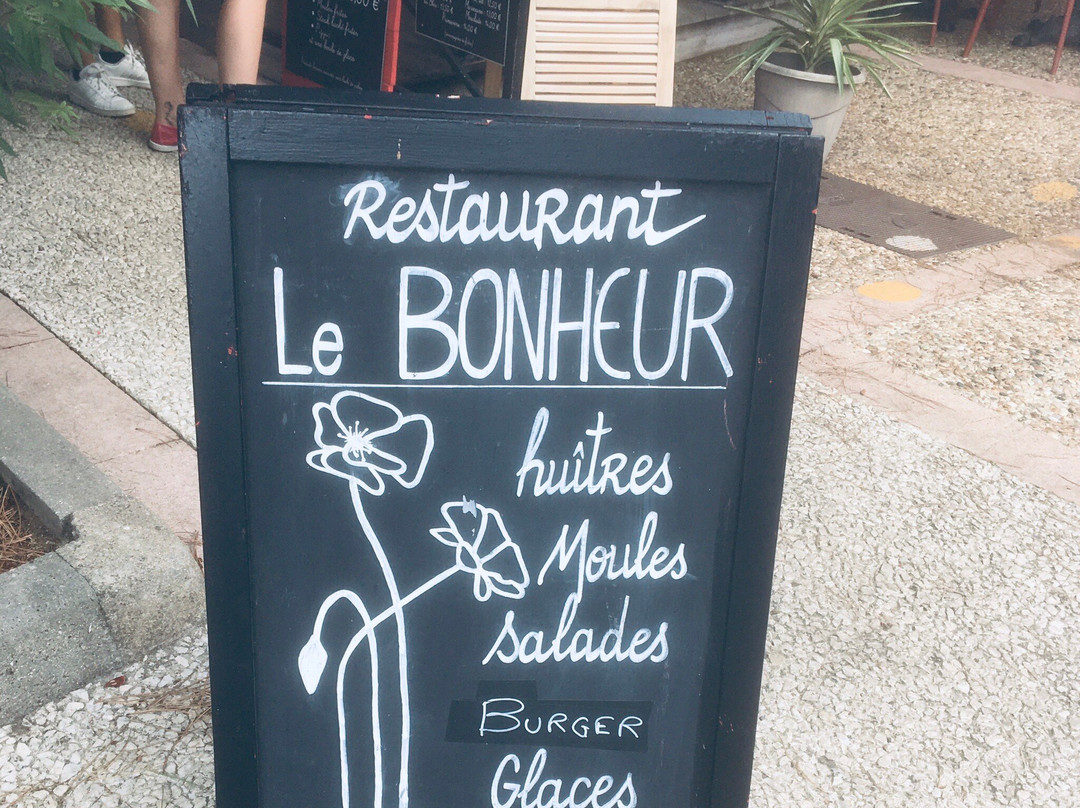 Restaurant
Le BONHEUR
huîtres
Moules
salades
BURGER
Glaces